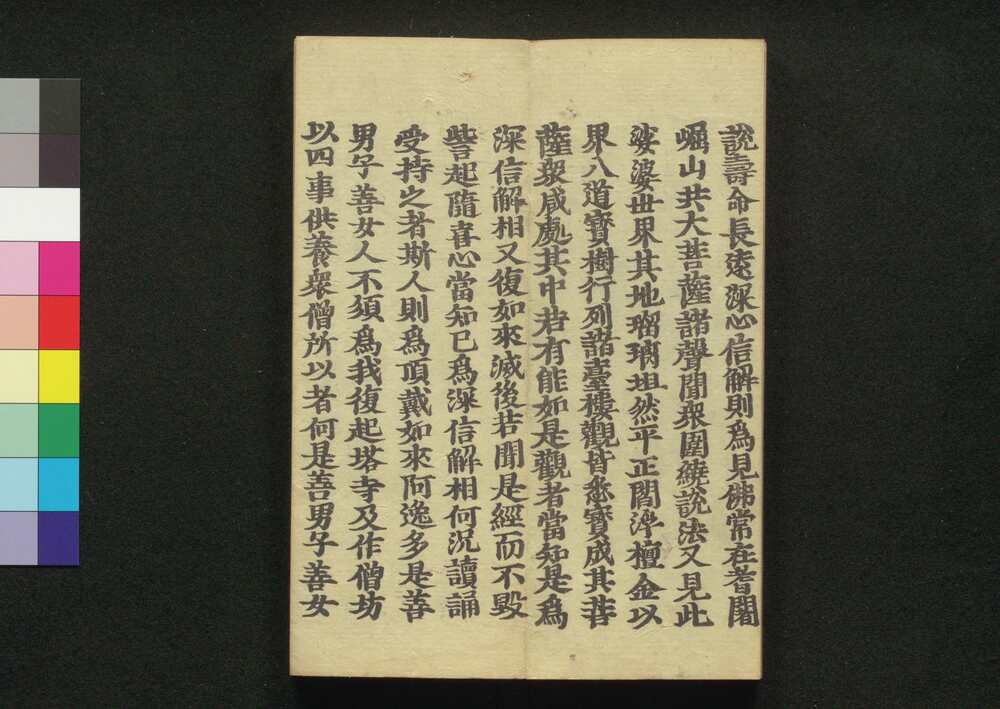 說壽命長遠深心信解則爲見佛常在耆闍
崛山共大菩薩諸聲聞衆圍繞說法又見此
娑婆世界其地瑠璃坦然平正閻浮檀金以
界八道寶樹行列諸臺樓觀皆悉寶成其菩
薩衆咸處其中若有能如是觀者當知是爲
深信解相又復如來滅後若聞是經而不毀
呰起隨喜心當知已爲深信解相何況讀誦
受持之者斯人則爲頂戴如來阿逸多是善
男子善女人不須爲我復起塔寺及作僧坊
以四事供養衆僧所以者何是善男子善女